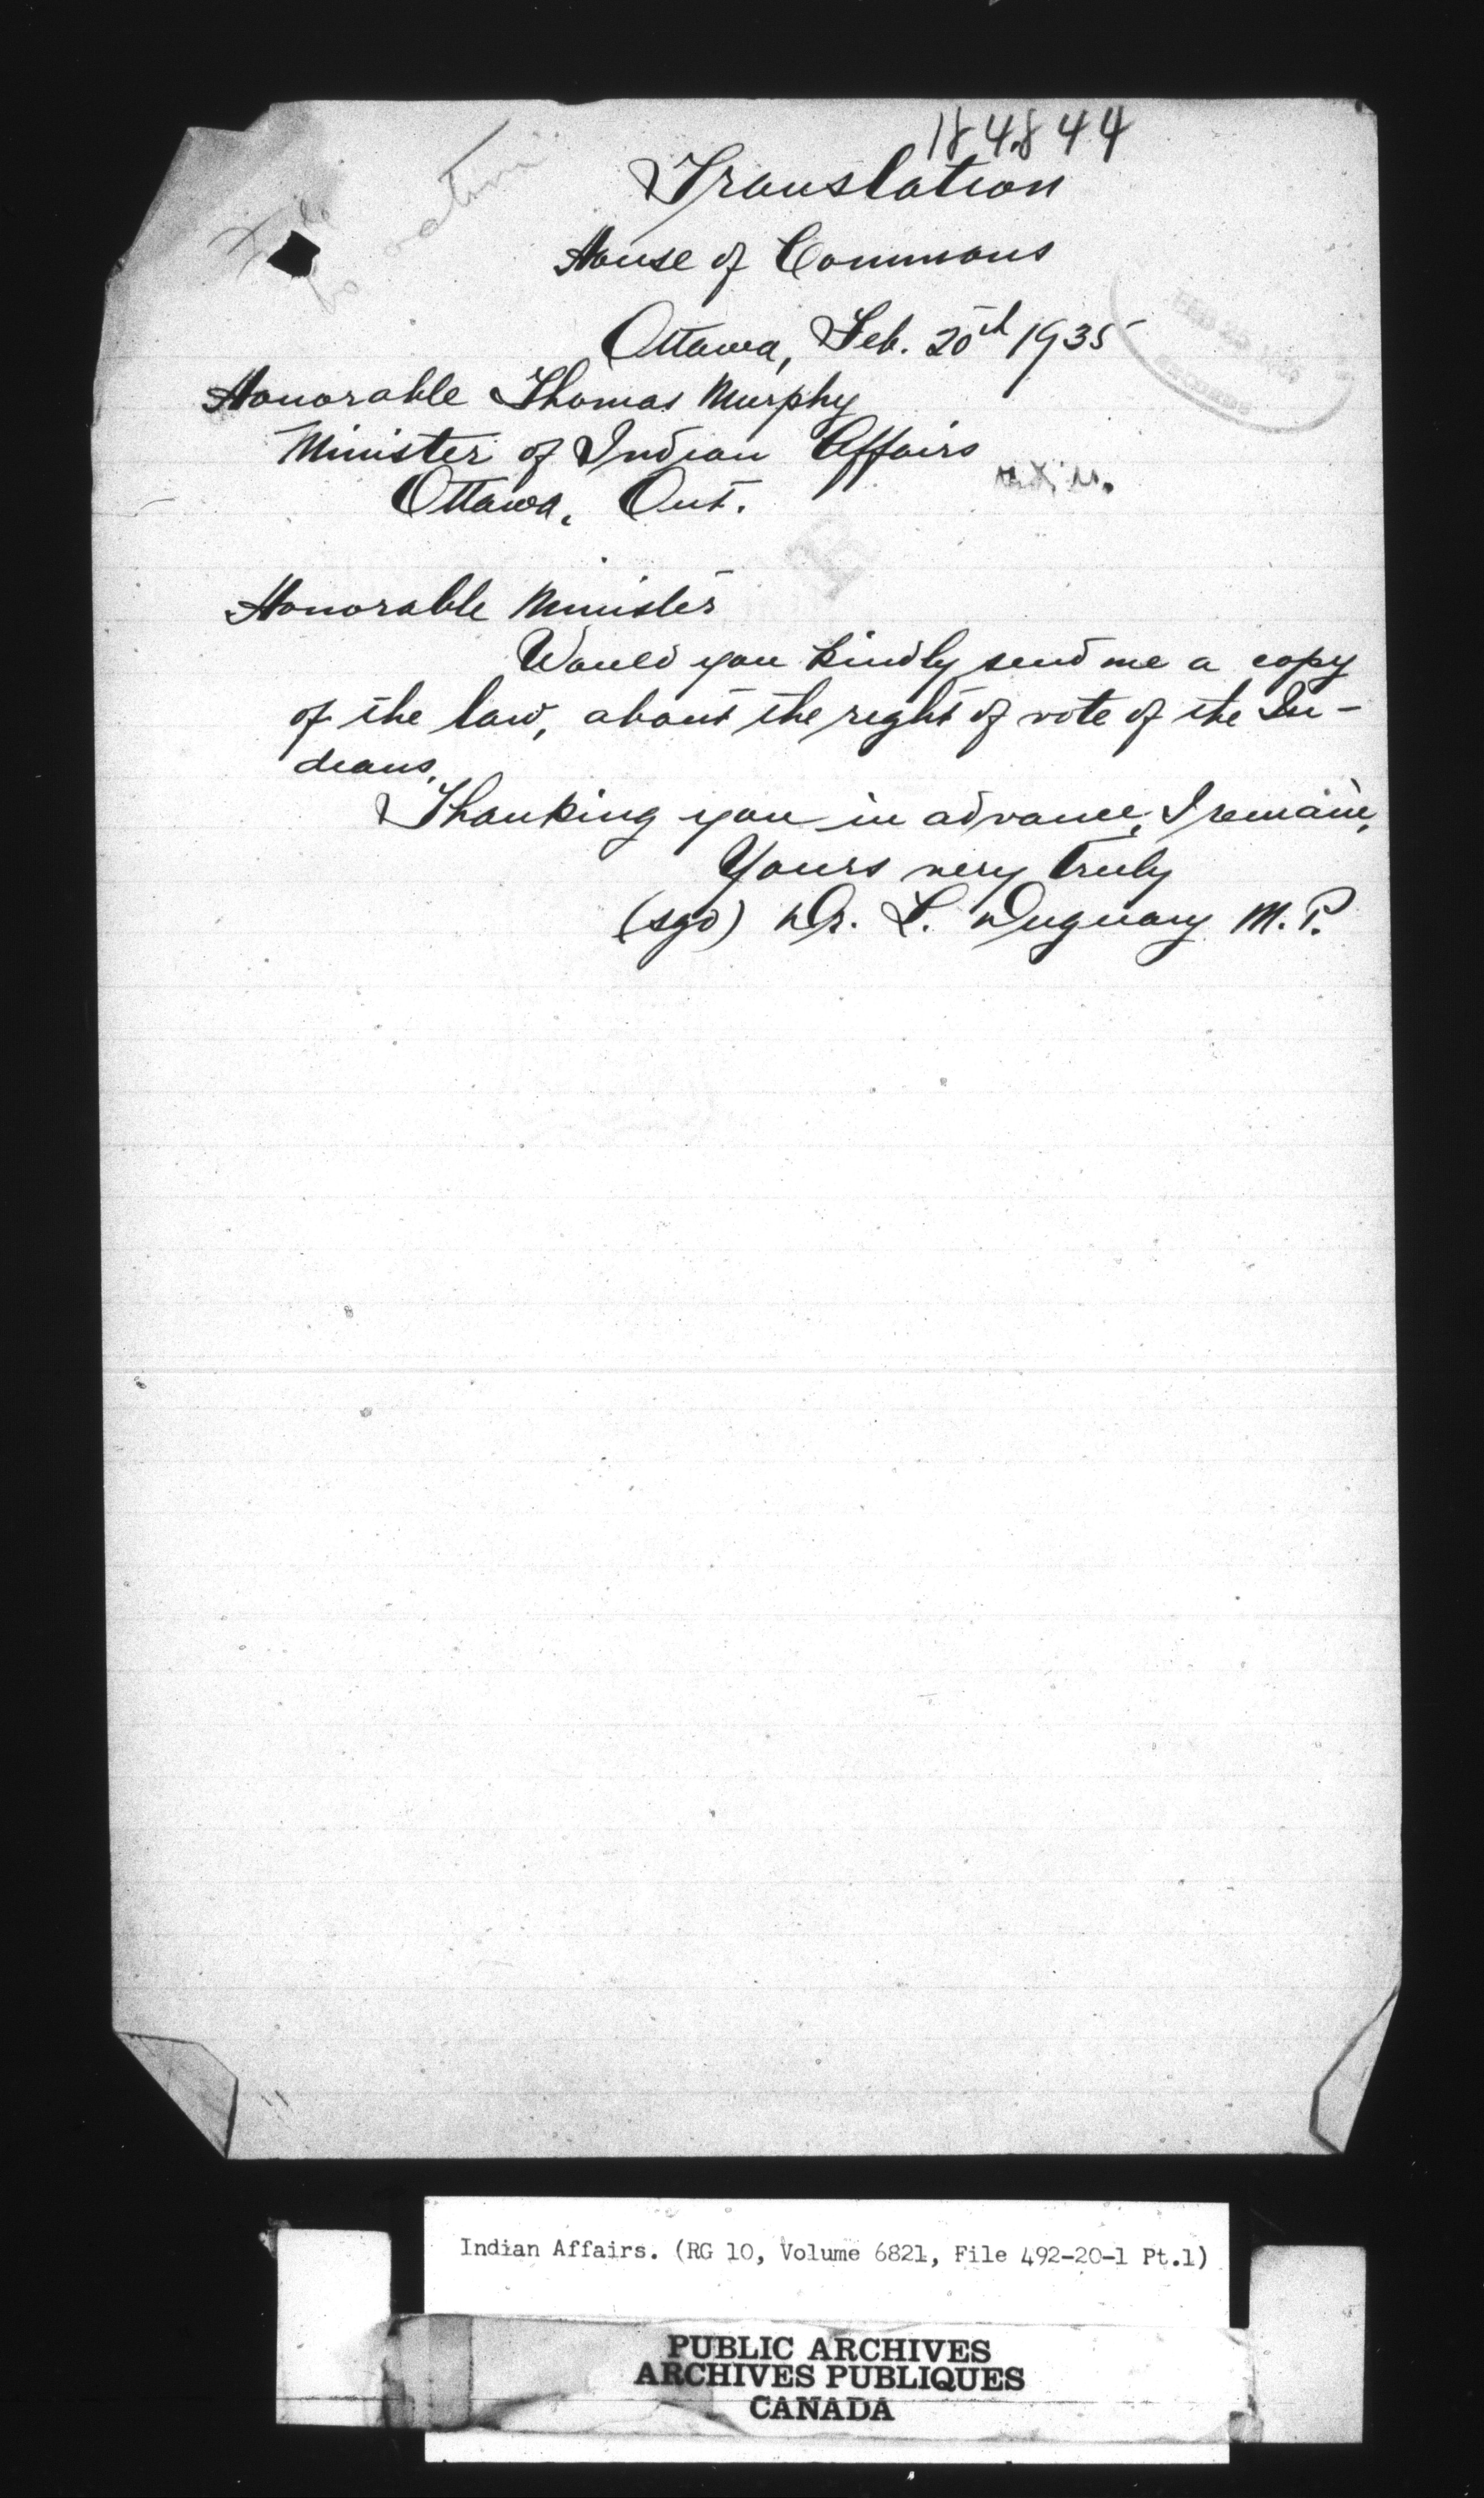 184844
Translation
House of Commons
Ottawa, Feb. 20th 1935
Honorable Thomas Murphy
Minister of Indian Affairs
Ottawa, Ont.
Honorable Minister
Would you kindly send me a copy
of the law, about the right of vote of the In-
dians.
Thanking you in advance, I remain,
Yours very truly
(sgd) Dr. L. Duguay M.P.
Indian Affairs. (RG 10, Volume 6821, File 492-20-1 Pt.1)
PUBLIC ARCHIVES
ARCHIVES PUBLIQUES
CANADA